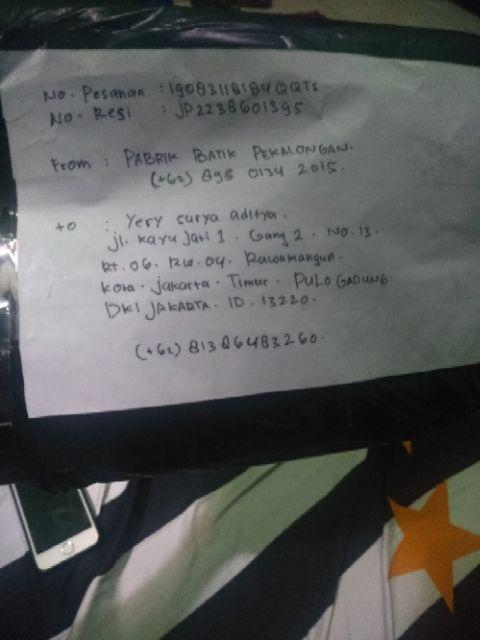 No. Pesanan : 19083118184QQTS
No. Resi : JP2238601395
From : PABRIK BATIK PEKALONGAN.
(+62) 895 0134 2015.
to : Yery surya aditya.
jl. Kayu Jati 1. Gang 2. No. 13.
Rt. 06. Rw. 04. Rawamangun.
Kota. jakarta. Timur. PULO GADUNG
DKI JAKARTA. ID. 13220.
(+62) 81386483260.